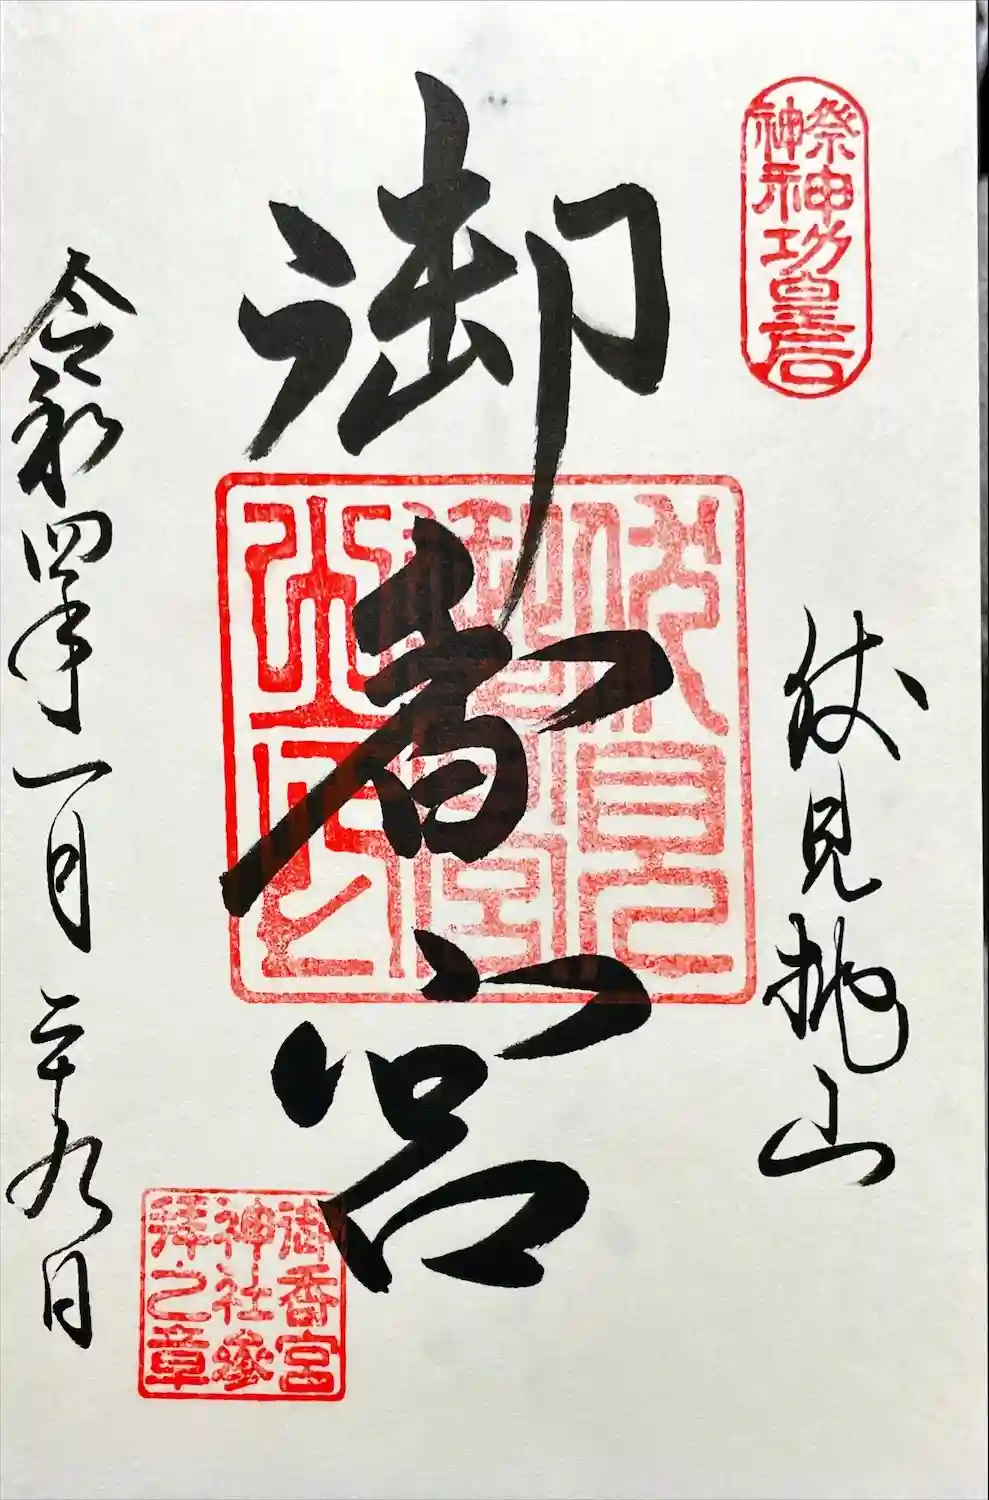 祭神
神功皇后
伏見桃山
御香宮
伏見
御香宮
御香宮
神社参
拝之章
令和四年一月二十九日